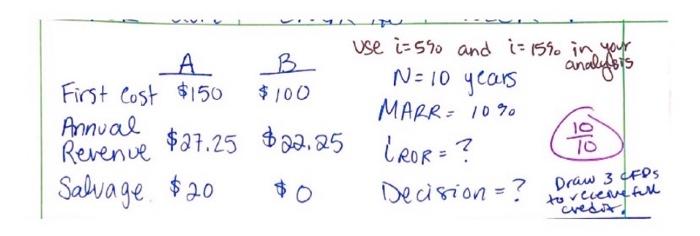 use i=5% and i=15% in your
analysis
A B
First Cost $150 $100
N=10 years
MARR = 10%
Annual
Revenue $27.25 $22.25
iROR = ?
10
10
Salvage $20 $0
Decision = ?
Draw 3 CFDs
to receive full
credit.